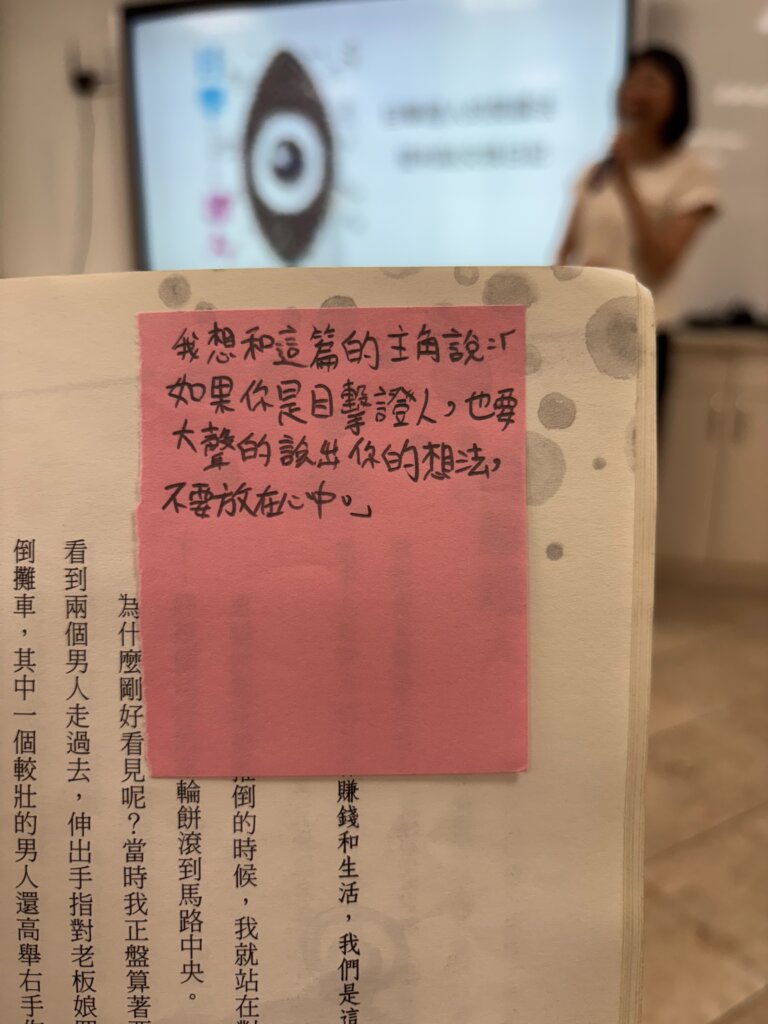 我想和這篇的主角說:「
如果你是目擊證人，也要
大聲的說出你的想法，
不要放在心中。」
賺錢和生活，我們是這
倒的時候，我就站在對
輪餅滾到馬路中央。
為什麼剛好看見呢？當時我正盤算著要
看到兩個男人走過去，伸出手指對老板娘
倒攤車，其中一個較壯的男人還高舉右手作